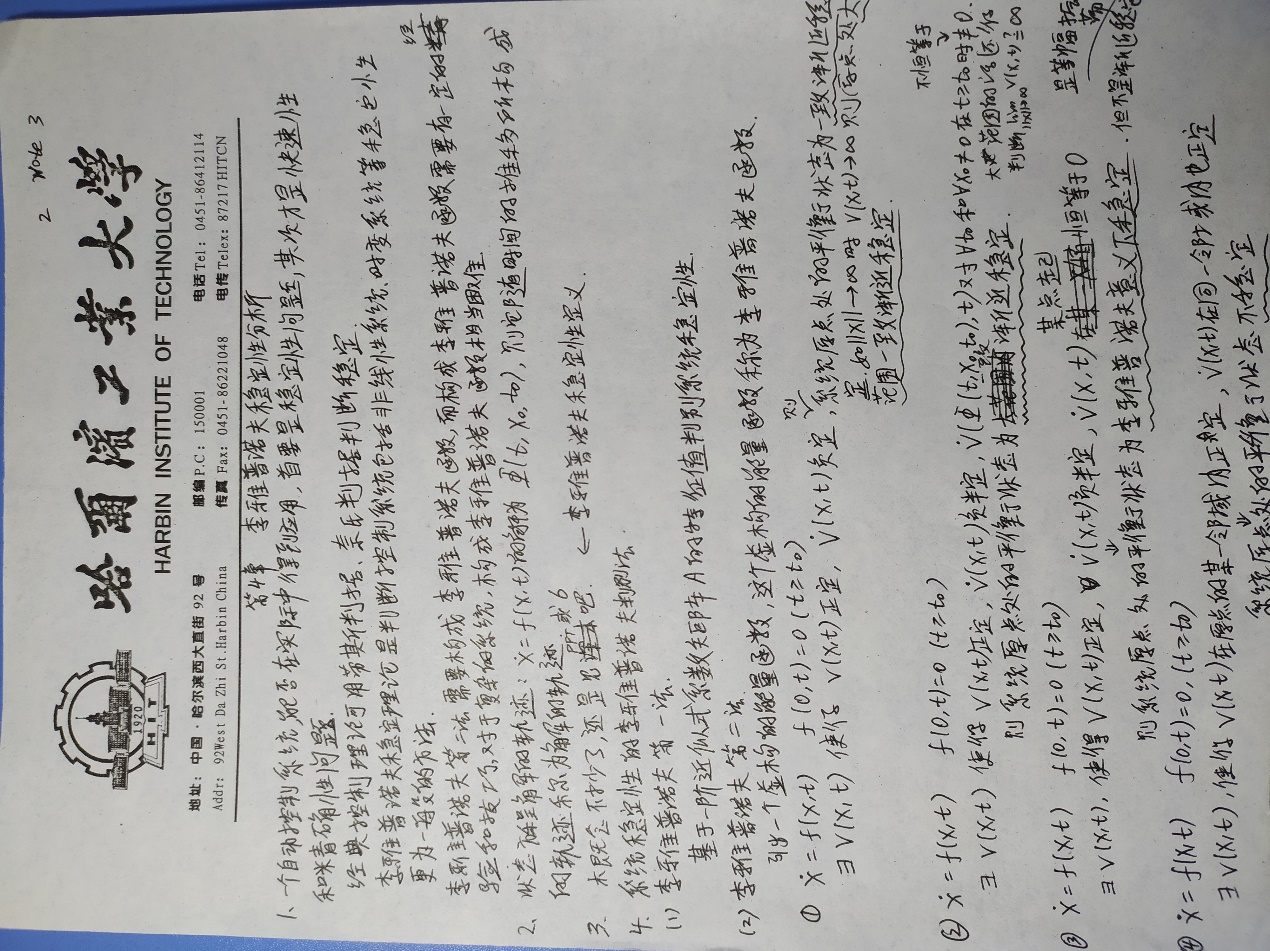 2 Note 3
哈爾濱工業大学
HARBIN INSTITUTE OF TECHNOLOGY
1920
HIT
地址: 中国·哈尔滨西大直街 92 号 邮编P.C: 150001 电话Tel: 0451-86412114
Addr: 92West Da Zhi St.Harbin China 传真 Fax: 0451-86221048 电传Telex: 87217HITCN
第4章 李雅普诺夫稳定性分析
1. 一个自动控制系统,能否在实际中得到应用,首要是稳定性问题,其次才是快速性
和准确性问题.
经典控制理论可用劳斯判据、奈氏判据判断稳定.
李雅普诺夫稳定理论是判断控制系统包括非线性系统、时变系统等稳定性
更为一般的方法.
李雅普诺夫第二法需要构成李雅普诺夫函数,而构成李雅普诺夫函数需要有一定的经
验和技巧,对于复杂的系统,构成李雅普诺夫函数相当困难.
2. 状态方程解的轨迹: ẋ=f(x,t)的解为Φ(t,x₀,t₀),则它随时间的推移所构成
的轨迹称为解的轨迹
3. 概念不抄了,还是见 吧. ← 李雅普诺夫稳定性定义.
4. 系统稳定性的李雅普诺夫判别法.
(1) 李雅普诺夫第一法.
基于一阶近似式系数矩阵A的特征值判别系统稳定性.
(2) 李雅普诺夫第二法
引出一个虚构的能量函数,这个虚构的能量函数称为李雅普诺夫函数.
① ẋ=f(x,t) f(0,t)=0 (t≥t₀)
∃ V(x,t) 使得 V(x,t)正定, V̇(x,t)负定,则系统原点处的平衡状态为一致渐近稳
定,如||x||→∞时 V(x,t)→∞ 则原点处大
范围一致渐近稳定.
② ẋ=f(x,t) f(0,t)=0 (t≥t₀)
∃ V(x,t) 使得 V(x,t)正定, V̇(x,t)负半定, V̇(Φ(t,x₀,t₀),t)对∀t₀和∀x₀≠0在t≥t₀时≢0.
不恒等于
则系统原点处的平衡状态为 渐近稳定.
大范围的话还得
判断 lim V(x,t)=∞
||x||→∞
③ ẋ=f(x,t) f(0,t)=0 (t≥t₀)
某点起
∃ V(x,t),使得 V(x,t)正定, V̇(x,t)负半定, V̇(x,t)在 恒等于0
则系统原点处的平衡状态为李雅普诺夫意义下稳定.但不是渐近稳定
是等幅振荡
④ ẋ=f(x,t) f(0,t)=0, (t≥t₀)
∃ V(x,t),使得 V(x,t)在原点的某一邻域内正定, V̇(x,t)在同一邻域内也正定
系统原点处的平衡状态不稳定